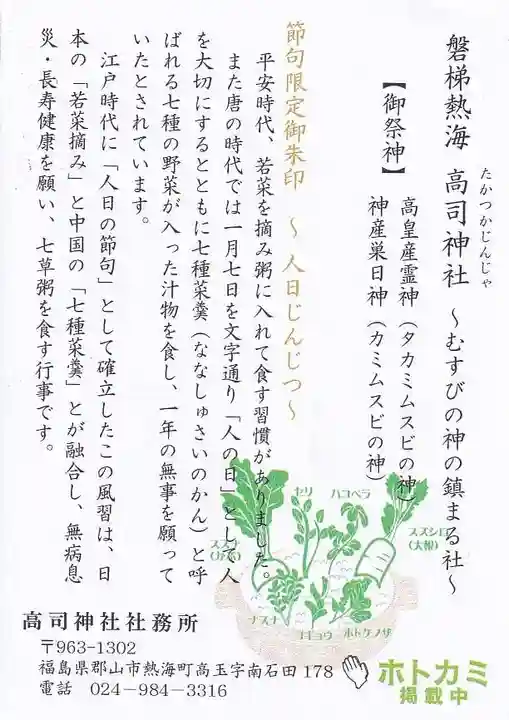 磐梯熱海 高司神社 ～むすびの神の鎮まる社～
たかつかじんじゃ
【御祭神】 高皇産霊神（タカミムスビの神）
神産巣日神（カミムスビの神）
節句限定御朱印 ～人日じんじつ～
平安時代、若菜を摘み粥に入れて食す習慣がありました。
また唐の時代では一月七日を文字通り「人の日」として人
を大切にするとともに七種菜羹（ななしゅさいのかん）と呼
ばれる七種の野菜が入った汁物を食し、一年の無事を願って
いたとされています。
江戸時代に「人日の節句」として確立したこの風習は、日
本の「若菜摘み」と中国の「七種菜羹」とが融合し、無病息
災・長寿健康を願い、七草粥を食す行事です。
セリ
ハコベラ
スズシロ
(大根)
スズナ
ナズナ
ゴギョウ
ホトケノザ
高司神社社務所
〒963-1302
福島県郡山市熱海町高玉字南石田178
電話 024-984-3316
ホトカミ
掲載中